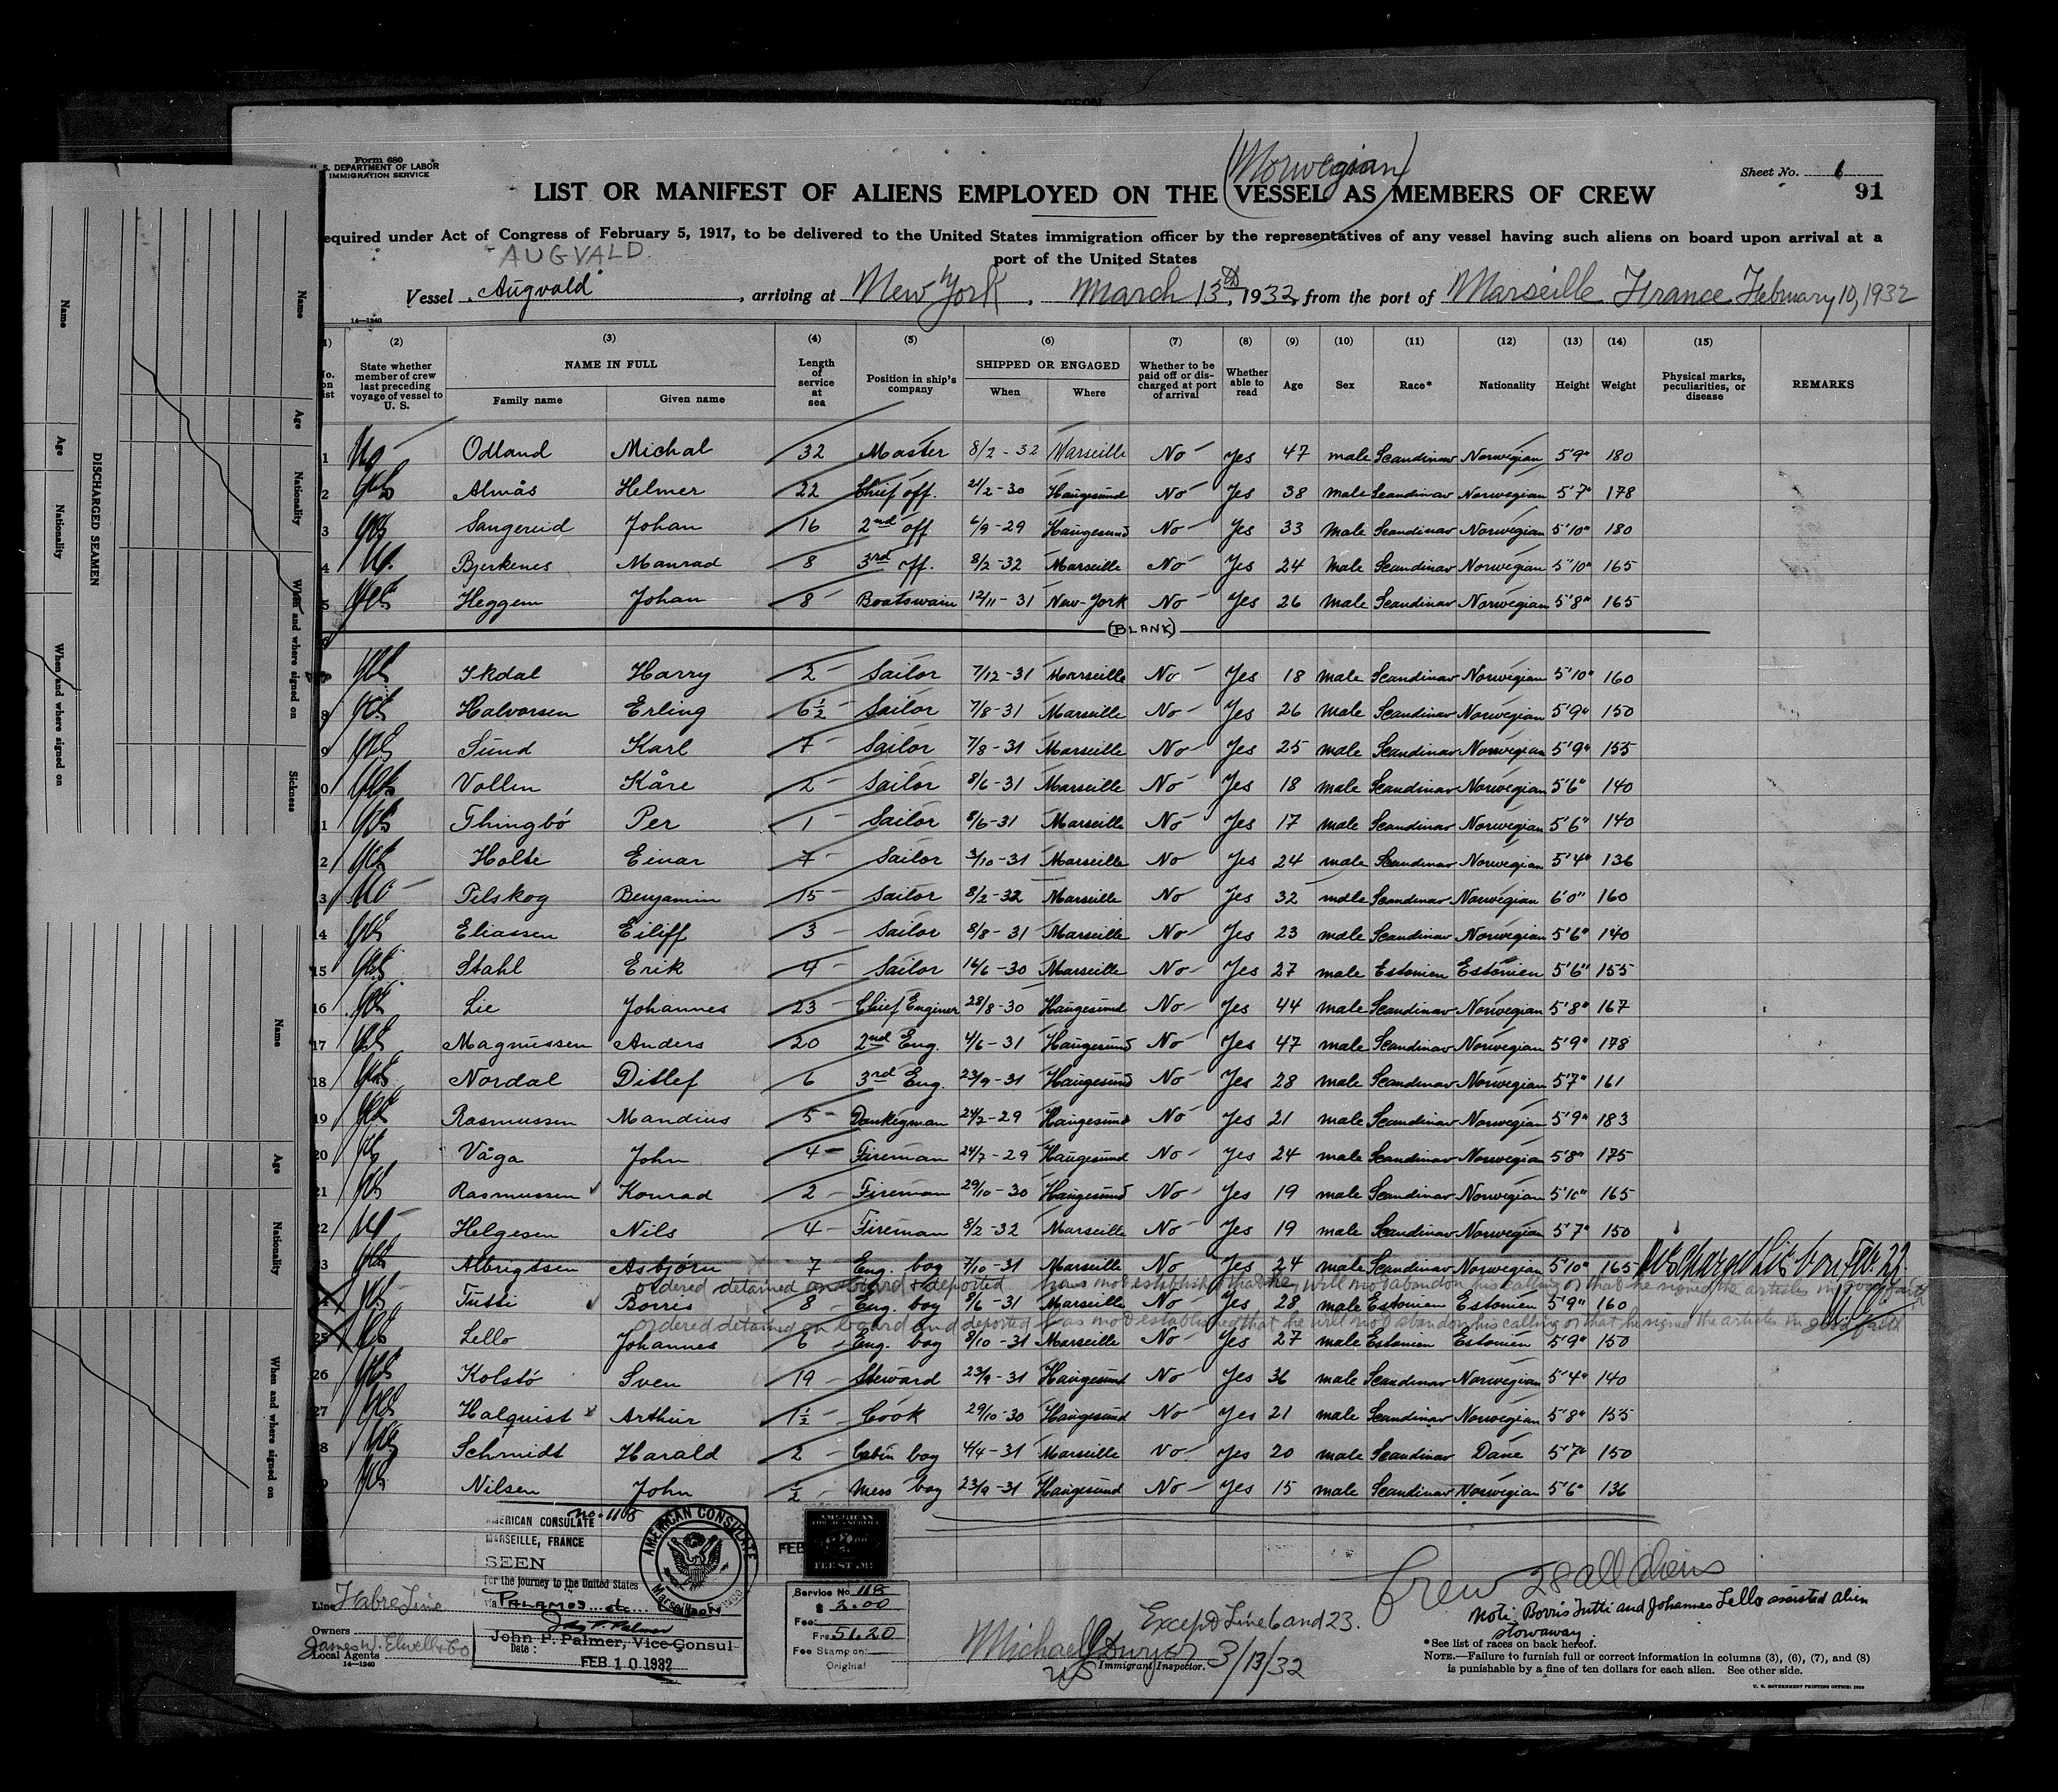 Form 680
U. S. DEPARTMENT OF LABOR
IMMIGRATION SERVICE
(Norwegian)
Sheet No. 1
91
LIST OR MANIFEST OF ALIENS EMPLOYED ON THE VESSEL AS MEMBERS OF CREW
equired under Act of Congress of February 5, 1917, to be delivered to the United States immigration officer by the representatives of any vessel having such aliens on board upon arrival at a
port of the United States
AUGVALD
Vessel Augvald, arriving at New York, March 13th, 1932, from the port of Marseille France February 10, 1932
14—1240
(2) (3) (4) (5) (6) (7) (8) (9) (10) (11) (12) (13) (14) (15)
No. on list
State whether member of crew last preceding voyage of vessel to U. S.
NAME IN FULL
Family name Given name
Length of service at sea
Position in ship's company
SHIPPED OR ENGAGED
When Where
Whether to be paid off or discharged at port of arrival
Whether able to read
Age Sex Race* Nationality Height Weight
Physical marks, peculiarities, or disease
REMARKS
1 No Odland Michal 32 Master 8/2-32 Marseille No Yes 47 male Scandinav Norwegian 5'9" 180
2 yes Almås Helmer 22 Chief off. 2/2-30 Haugesund No Yes 38 Male Scandinav Norwegian 5'7" 178
3 yes Sangereid Johan 16 2nd off 6/9-29 Haugesund No Yes 33 Male Scandinav Norwegian 5'10" 180
4 No. Bjerkenes Manrad 8 3rd off. 8/2-32 Marseille No Yes 24 Male Scandinav Norwegian 5'10" 165
5 yes Heggem Johan 8 Boatswain 12/11-31 New-York No Yes 26 Male Scandinav Norwegian 5'8" 165
(BLANK)
yes Ikdal Harry 2 Sailor 7/12-31 Marseille No Yes 18 male Scandinav Norwegian 5'10" 160
8 yes Halvorsen Erling 6½ Sailor 7/8-31 Marseille No Yes 26 Male Scandinav Norwegian 5'9" 150
9 yes Sund Karl 7 Sailor 7/8-31 Marseille No Yes 25 male Scandinav Norwegian 5'9" 155
0 yes Vollen Kåre 2 Sailor 8/6-31 Marseille No Yes 18 male Scandinav Norwegian 5'6" 140
1 yes Thingbö Per 1 Sailor 8/6-31 Marseille No Yes 17 male Scandinav Norwegian 5'6" 140
2 yes Holte Einar 7 Sailor 3/10-31 Marseille No Yes 24 male Scandinav Norwegian 5'4" 136
3 No Pilskog Benjamin 15 Sailor 8/2-32 Marseille No Yes 32 male Scandinav Norwegian 6'0" 160
14 yes Eliassen Eiliff 3 Sailor 8/8-31 Marseille No Yes 23 male Scandinav Norwegian 5'6" 140
15 yes Stahl Erik 4 Sailor 16/6-30 Marseille No Yes 27 male Estonien Estonien 5'6" 155
16 yes Lie Johannes 23 Chief Enginer 28/8-30 Haugesund No Yes 44 male Scandinav Norwegian 5'8" 167
17 yes Magnussen Anders 20 2nd Eng. 4/6-31 Haugesund No Yes 47 male Scandinav Norwegian 5'9" 178
18 yes Nordal Ditlef 6 3rd Eng. 23/9-31 Haugesund No Yes 28 male Scandinav Norwegian 5'7" 161
19 yes Rasmussen Mandius 5 Donkeyman 24/7-29 Haugesund No Yes 21 male Scandinav Norwegian 5'9" 183
20 yes Våga John 4 Fireman 24/7-29 Haugesund No Yes 24 male Scandinav Norwegian 5'8" 175
21 yes Rasmussen Konrad 2 Fireman 29/10-30 Haugesund No Yes 19 male Scandinav Norwegian 5'10" 165
22 No Helgesen Nils 4 Fireman 8/2-32 Marseille No Yes 19 male Scandinav Norwegian 5'7" 150
23 yes Albrigtsen Asbjörn 7 Eng. boy 7/10-31 Marseille No Yes 24 male Scandinav Norwegian 5'10" 165 Discharged Lisbon Feb. 22.
ordered detained on board & deported has not established that he will not abandon his calling or that he signed the articles in good faith
yes Tutti Borris 8 Eng. boy 8/6-31 Marseille No Yes 28 male Estonien Estonien 5'9" 160
ordered detained on board and deported has not established that he will not abandon his calling or that he signed the articles in good faith
25 yes Lello Johannes 6 Eng. boy 8/10-31 Marseille No Yes 27 male Estonien Estonien 5'9" 150
26 yes Kolstö Sven 19 Steward 23/9-31 Haugesund No Yes 36 male Scandinav Norwegian 5'4" 140
27 yes Halquist Arthur 1½ Cook 29/10-30 Haugesund No Yes 21 male Scandinav Norwegian 5'8" 155
8 yes Schmidt Harald 2 Cabin boy 4/4-31 Marseille No Yes 20 male Scandinav Dane 5'7" 150
yes Nilsen John ½ Mess boy 23/9-31 Haugesund No Yes 15 male Scandinav Norwegian 5'6" 136
No. 118
AMERICAN CONSULATE
MARSEILLE, FRANCE
SEEN
For the journey to the United States
via PALAMOS etc.
John P. Palmer, Vice Consul
Date: FEB 10 1932
AMERICAN CONSULATE
Marseille, France
FEB
AMERICAN
FOREIGN SERVICE
FEE STAMP
Service No. 118
$ 2.00
Fee:
Frs 51.20
Fee Stamp on:
Original
Line Fabre Line
Owners
James W. Elwell & Co
Local Agents
14—1240
Crew 28 all aliens
Except Line 6 and 23.
Michael Dwyer
US Immigrant Inspector. 3/13/32
Note: Borris Tutti and Johannes Lello assisted alien
stowaway.
*See list of races on back hereof.
NOTE.—Failure to furnish full or correct information in columns (3), (6), (7), and (8)
is punishable by a fine of ten dollars for each alien. See other side.
U. S. GOVERNMENT PRINTING OFFICE: 1929
DISCHARGED SEAMEN
Name
Age
Nationality
When and where signed on
Name
Age
Nationality
When and where signed on
Sickness
Name
Age
Nationality
When and where signed on